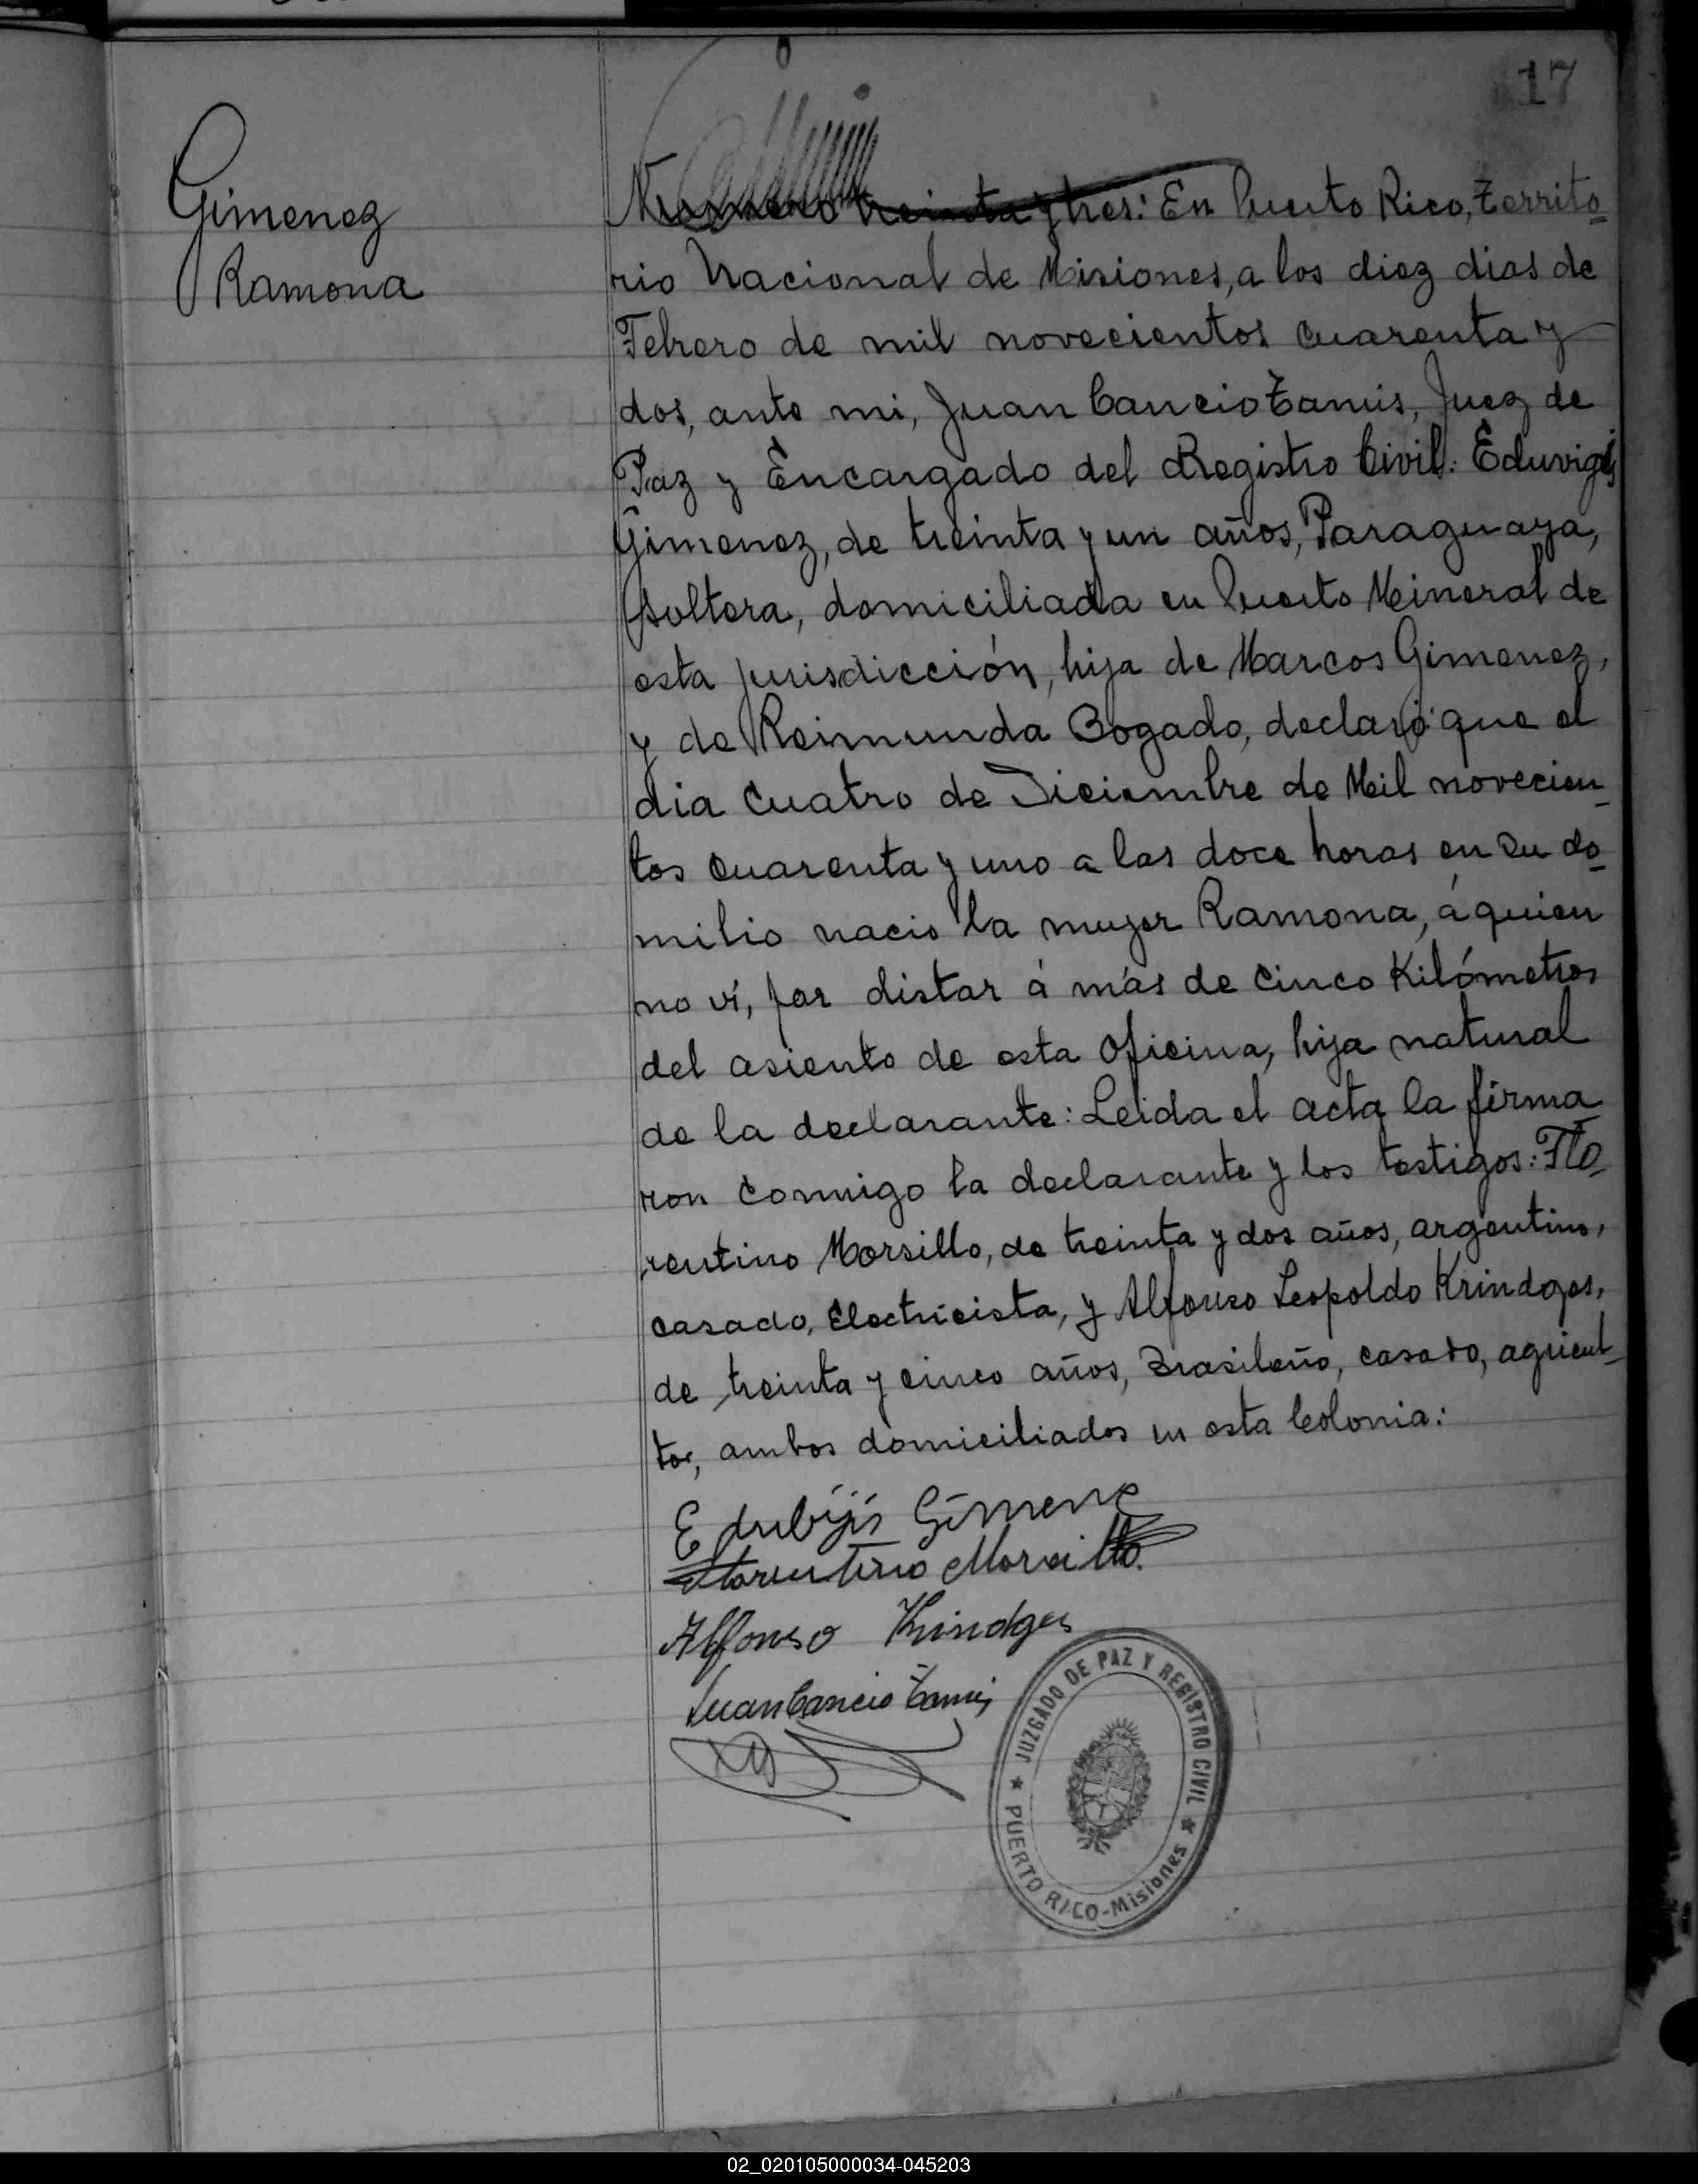 17
Gimenez
Ramona
Numero treinta y tres: En Puerto Rico, Territo
rio Nacional de Misiones, a los diez dias de
Febrero de mil novecientos cuarenta y
dos, ante mi, Juan Cancio Tamis, Juez de
Paz y Encargado del Registro Civil: Eduvigis
Gimenez, de treinta y un años, Paraguaya,
soltera, domiciliada en Puerto Mineral de
esta jurisdicción, hija de Marcos Gimenez,
y de Reimunda Bogado, declaró: que el
dia cuatro de Diciembre de Mil novecien_
tos cuarenta y uno a las doce horas en su do_
milio nacio la mujer Ramona, á quien
no ví, por distar á más de cinco Kilómetros
del asiento de esta Oficina, hija natural
de la declarante: Leida el acta la firma_
ron conmigo la declarante y los testigos: Flo_
rentino Morsillo, de treinta y dos años, argentino,
casado, Electricista, y Alfonso Leopoldo Krindges,
de treinta y cinco años, Brasileño, casado, agricul_
tor, ambos domiciliados en esta Colonia:
Edubijis Gimenez
Florentino Morcillo.
Alfonso Krindges
Juan Cancio Tamis
JUZGADO DE PAZ Y REGISTRO CIVIL
PUERTO RICO-Misiones
02_020105000034-045203